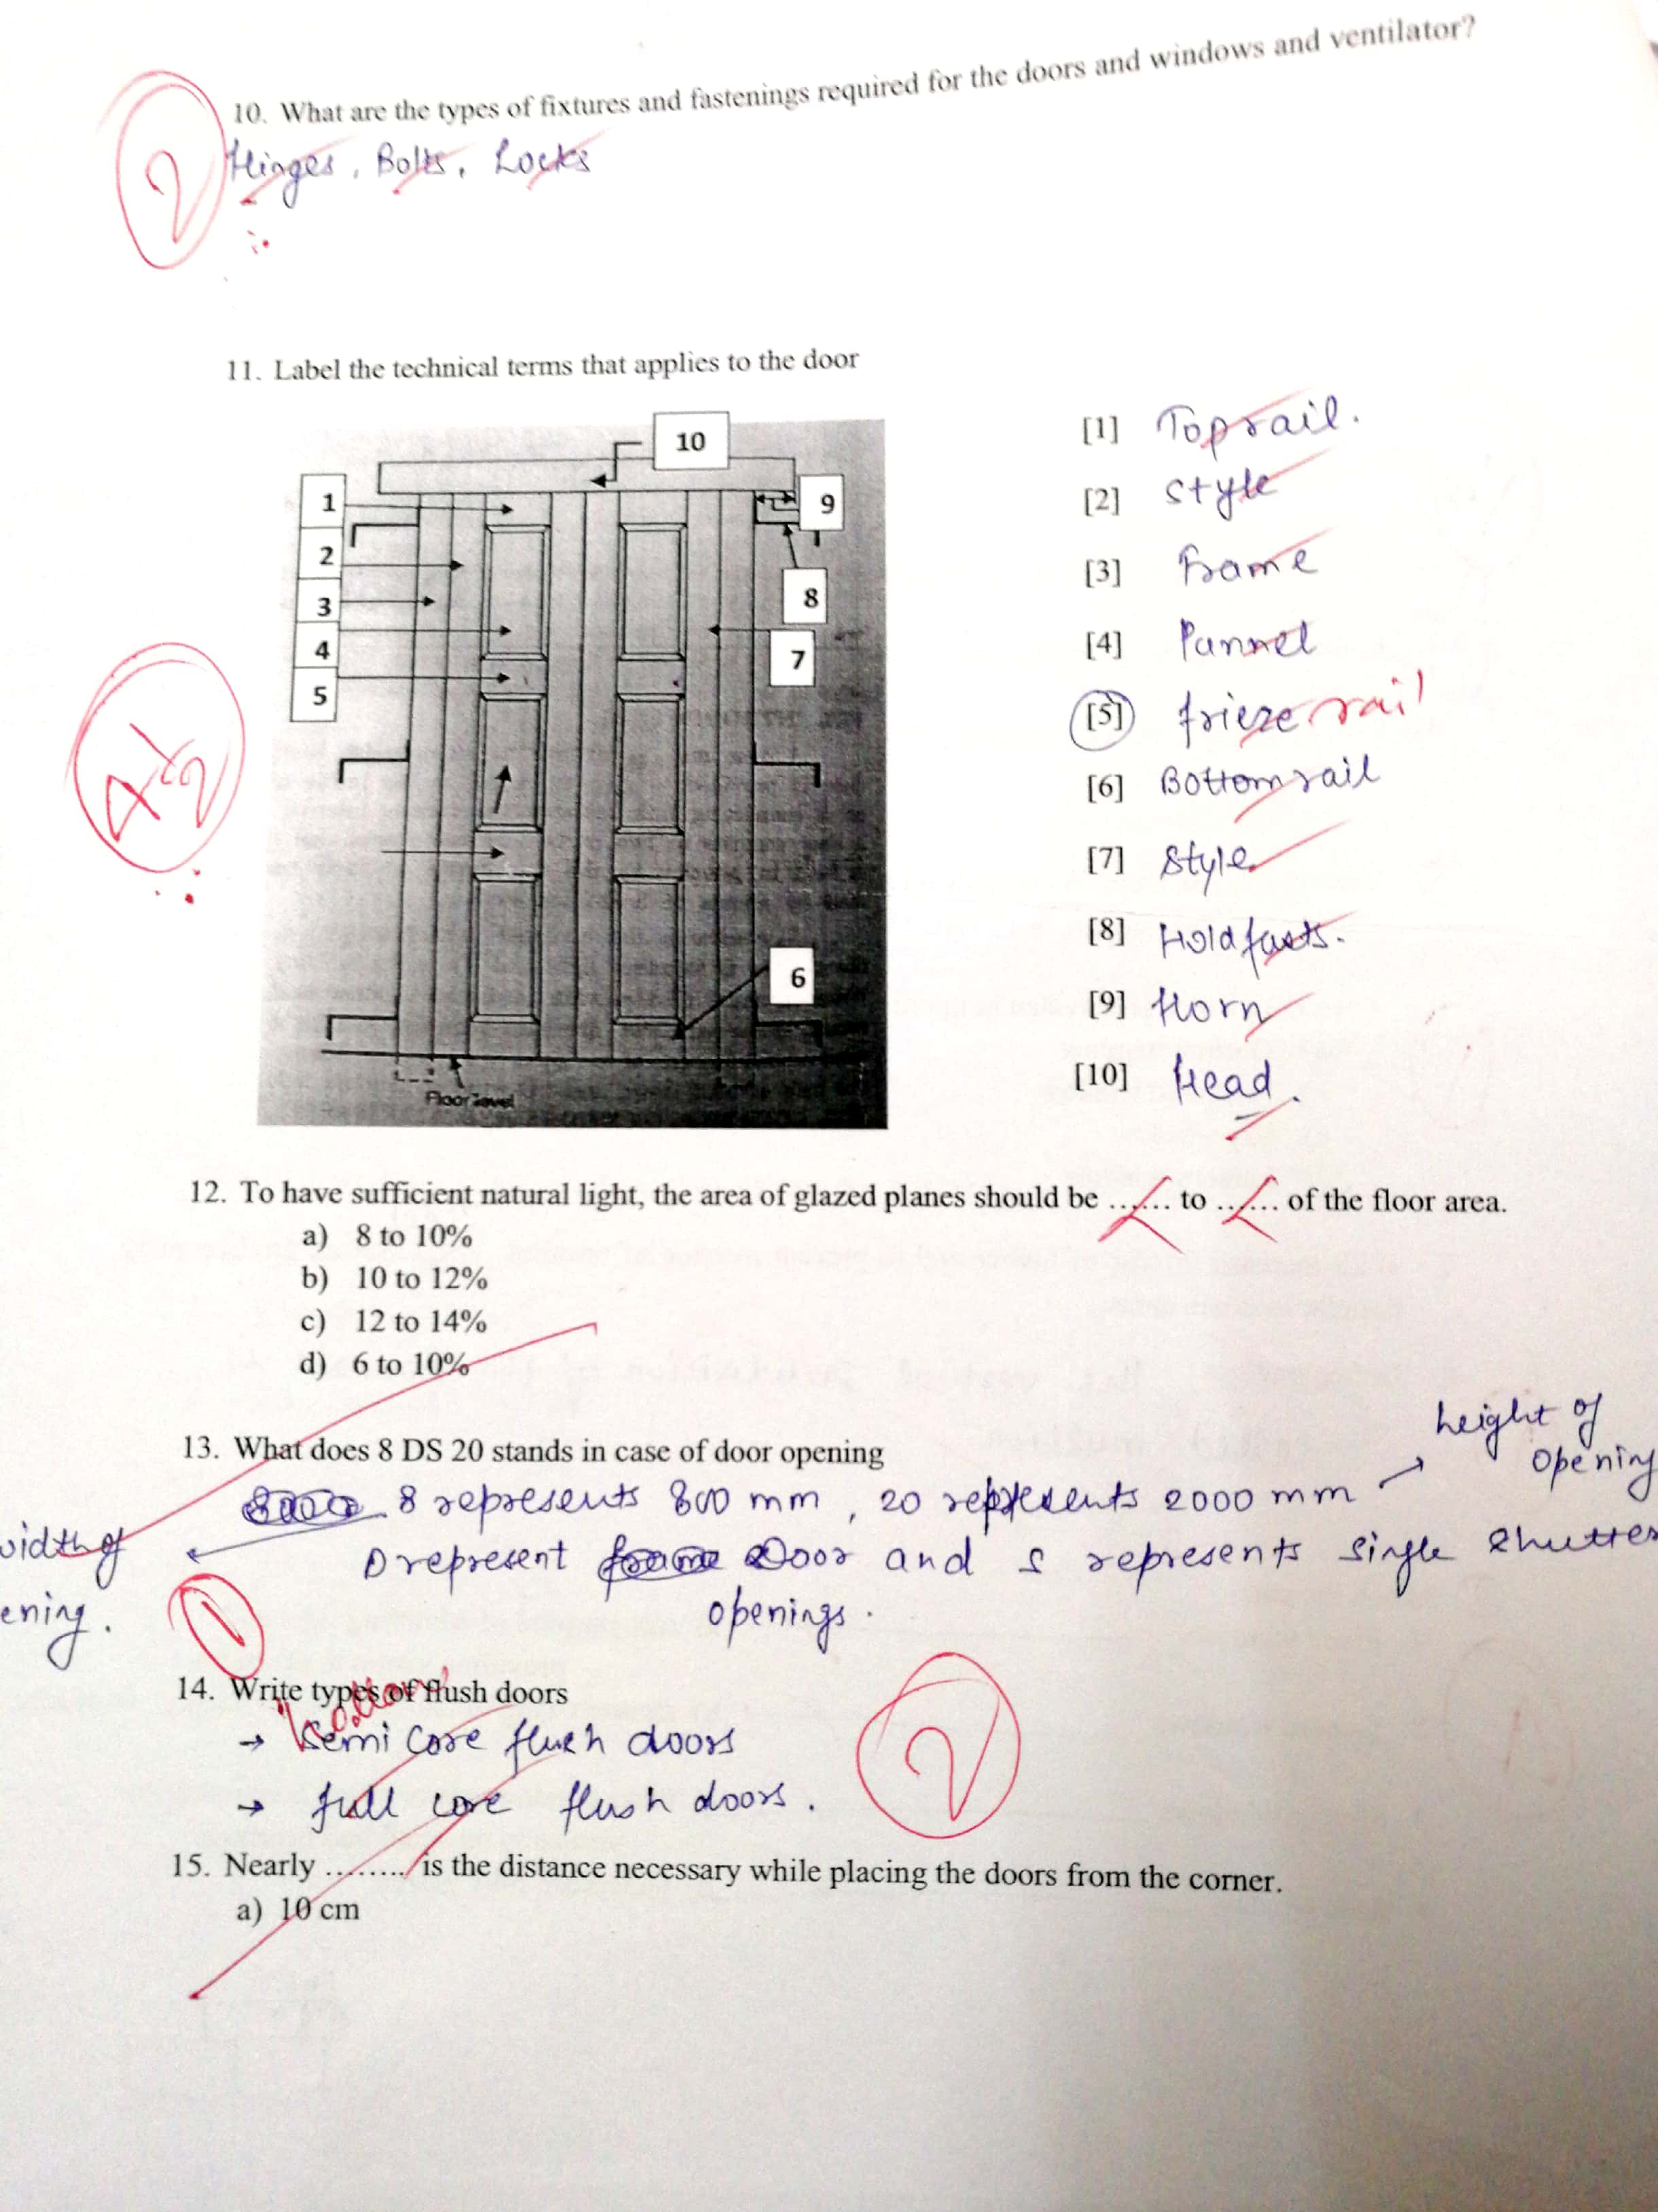 10. What are the types of fixtures and fastenings required for the doors and windows and ventilator?
2
Hinges, Bolts, Locks
11. Label the technical terms that applies to the door
10
1
2
3
4
5
9
8
7
6
Floor level
4½
[1] Top rail.
[2] Style
[3] Frame
[4] Pannel
[5] frieze rail
[6] Bottom rail
[7] Style
[8] Hold fasts.
[9] Horn
[10] Head.
12. To have sufficient natural light, the area of glazed planes should be ...... to ...... of the floor area.
a) 8 to 10%
b) 10 to 12%
c) 12 to 14%
d) 6 to 10%
13. What does 8 DS 20 stands in case of door opening
height of
opening
8 represents 800 mm, 20 represents 2000 mm →
width of
ening.
D represent Door and S represents single shutter
openings.
1
14. Write types of flush doors
hollow
→ Semi core flush doors
→ full core flush doors.
2
15. Nearly ......... is the distance necessary while placing the doors from the corner.
a) 10 cm